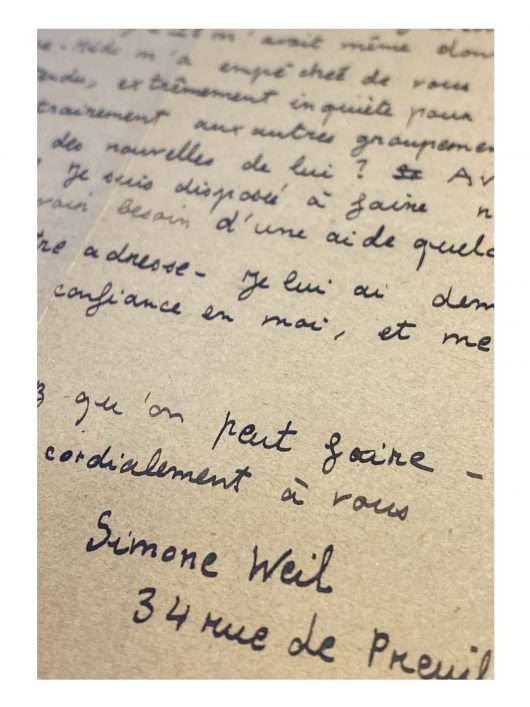 m'avait même don
m'a empêcheé de vous
extrêmement inquiète pour
trairement aux autres groupemen
des nouvelles de lui ? Av
Je suis disposé à faire n
besoin d'une aide quelc
tre adresse - Je lui ai dem
confiance en moi, et me
qu'on peut faire -
cordialement à vous
Simone Weil
34 rue de Preuil